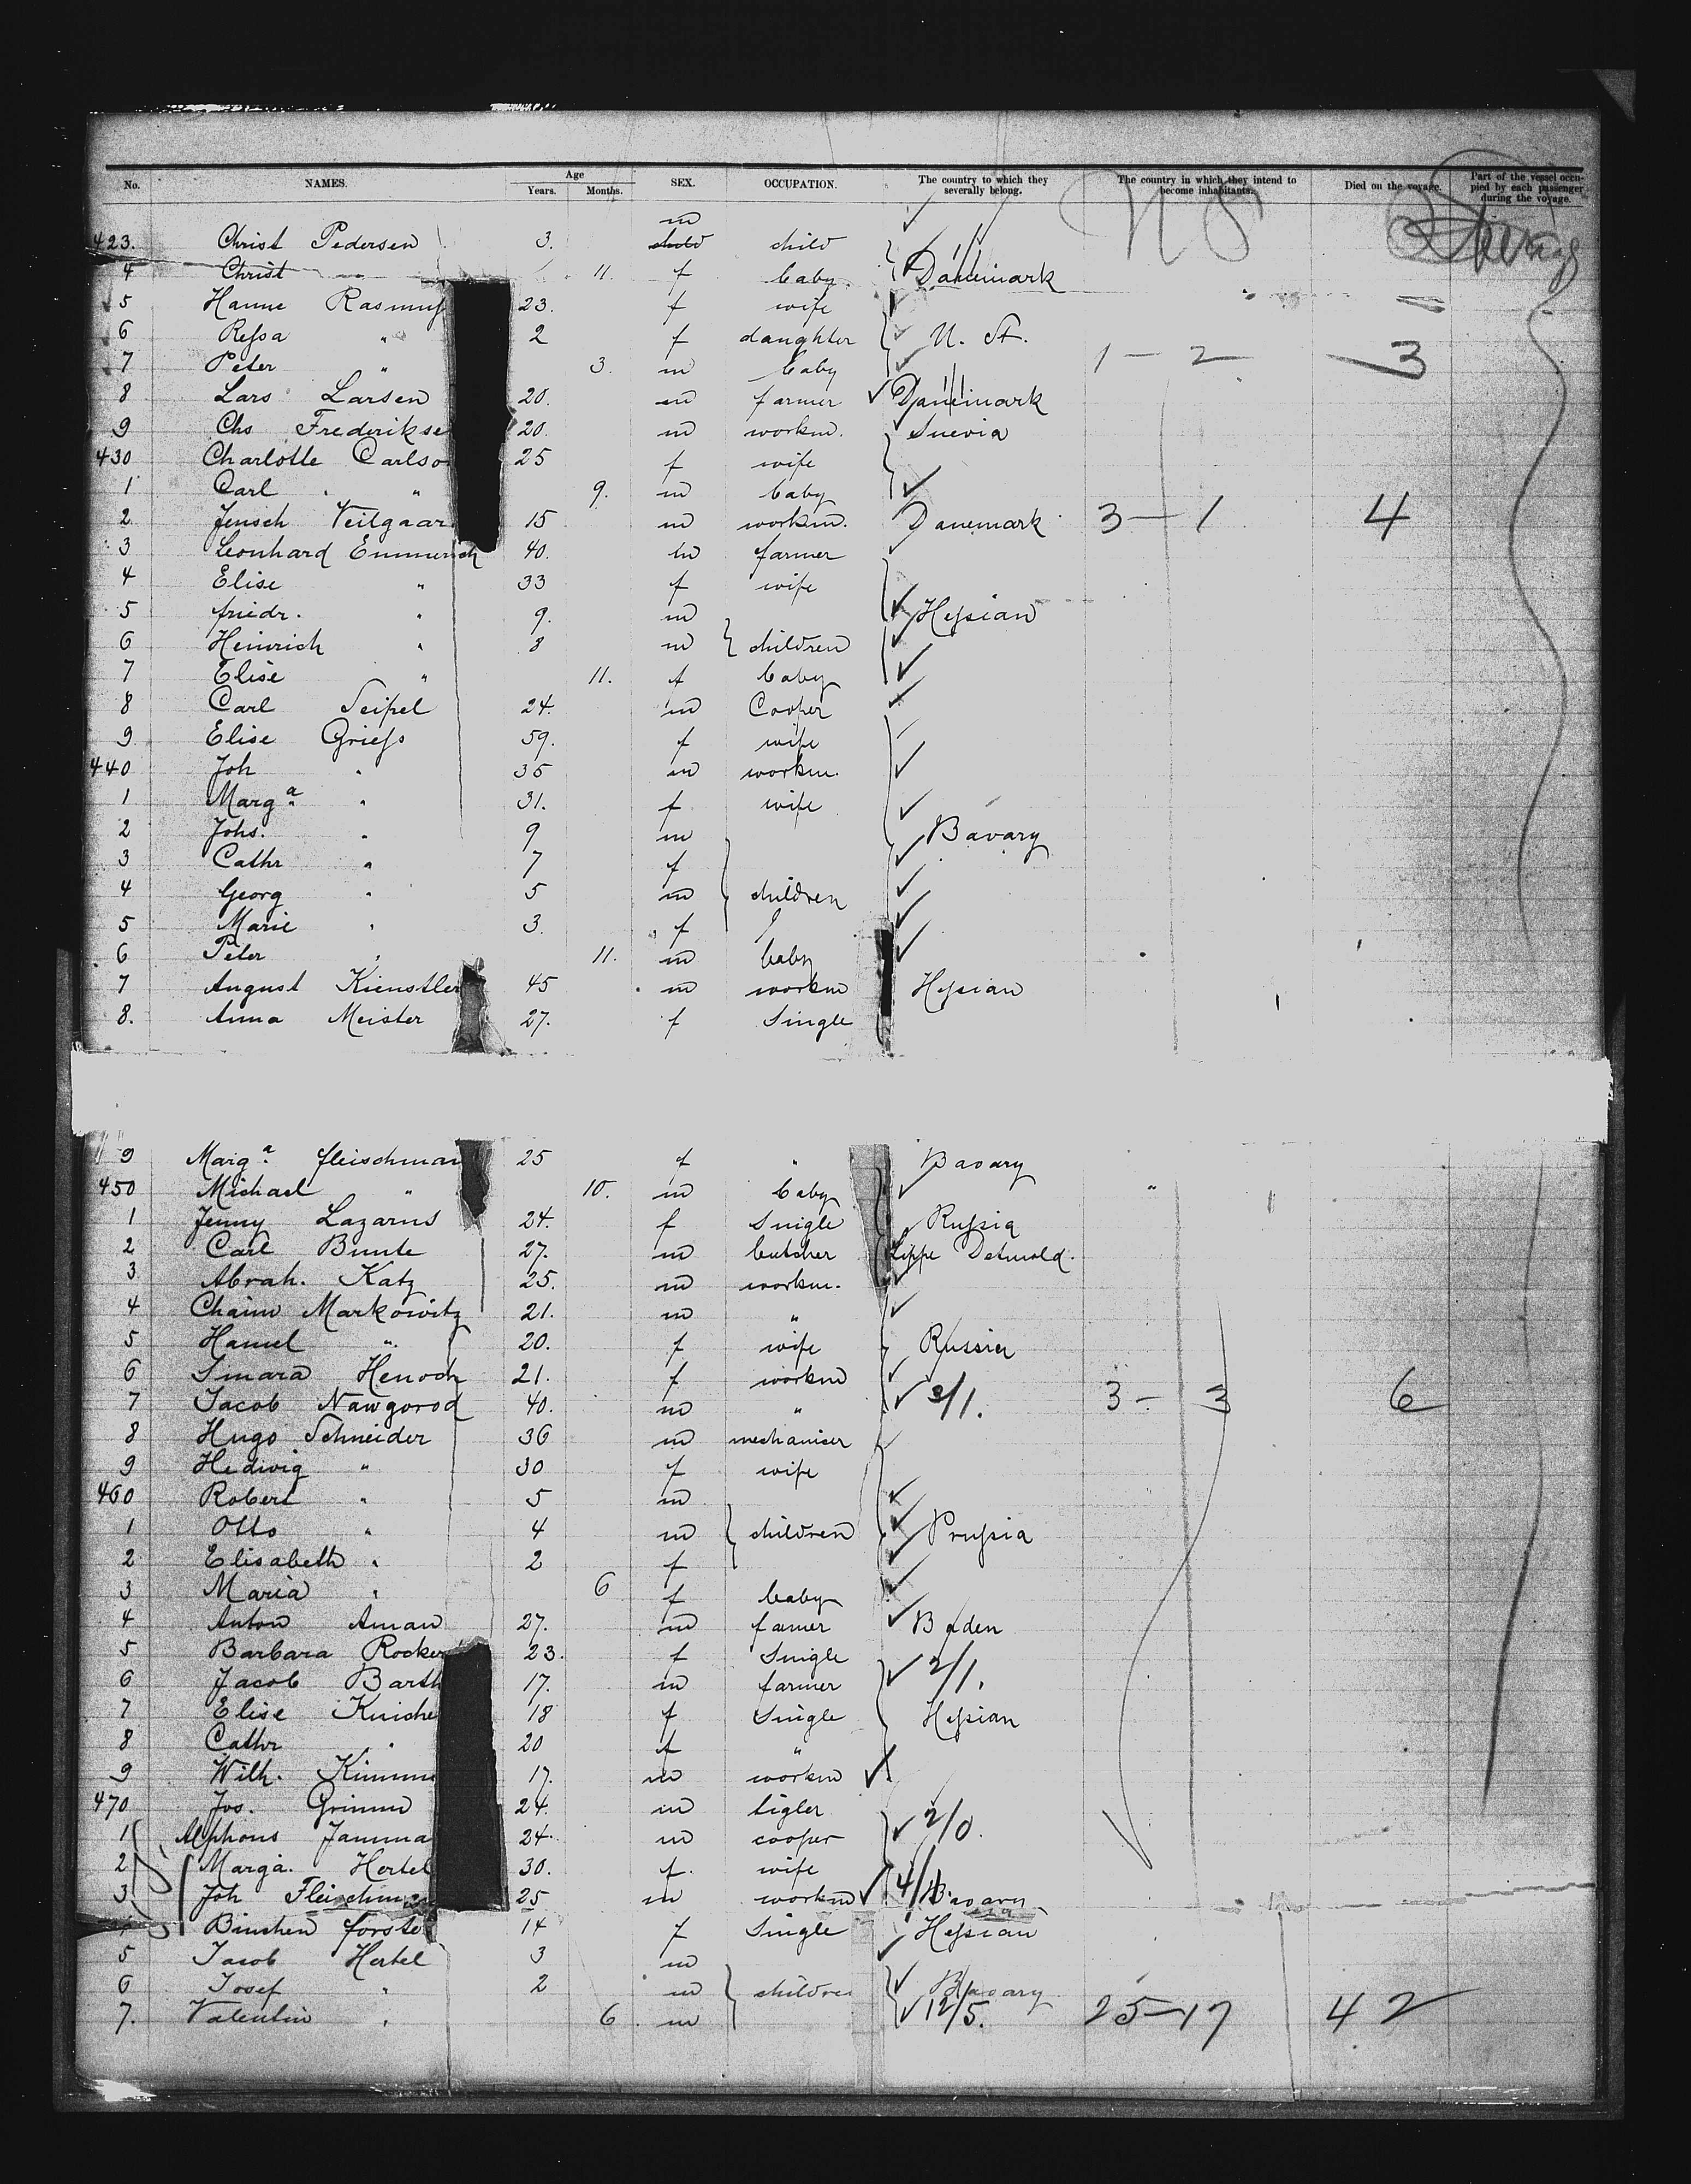 No. NAMES. Age Years. Months. SEX. OCCUPATION. The country to which they severally belong. The country in which they intend to become inhabitants. Died on the voyage. Part of the vessel occupied by each passenger during the voyage.
m U S
423. Christ Pedersen 3. child child
4 Christ 11. f baby Danemark
5 Hanne Rasmuſ 23. f wife
6 Reſsa " 2 f daughter U. St.
7 Peter " 3. m baby 1 — 2 3
8 Lars Larsen 20. m farmer Danemark
9 Chs Frederikse 20. m workm. Suevia
430 Charlotte Carlso 25 f wife
1 Carl " 9. m baby
2 Jensch Veilgaar 15 m workm. Danemark 3 — 1 4
3 Leonhard Emmerich 40. m farmer
4 Elise " 33 f wife
5 friedr. " 9. m Heſsian
6 Heinrich " 8 m children
7 Elise " 11. f baby
8 Carl Seipel 24. m Cooper
9 Elise Grieſs 59. f wife
440 Joh " 35 m workm.
1 Marga " 31. f wife
2 Johs. " 9 m Bavary
3 Cathr " 7 f
4 Georg " 5 m children
5 Marie " 3. f
6 Peter " 11. m baby
7 August Kienstler 45 m workm Heſsian
8. Anna Meister 27. f Single
9 Marga fleischman 25 f " Bavary
450 Michael " 10. m baby
1 Jenny Lazarus 24. f Single Ruſsia
2 Carl Bunte 27. m butcher Lippe Detmold.
3 Abrah. Katz 25. m workm.
4 Chaim Markowitz 21. m "
5 Hamel " 20. f wife Russia
6 Smara Henoch 21. f workm
7 Jacob Nawgorod 40. m " 3/1. 3 — 3 6
8 Hugo Schneider 36 m mechaniser
9 Hedwig " 30 f wife
460 Robert " 5 m
1 Otto " 4 m children Pruſsia
2 Elisabeth " 2 f
3 Maria " 6 f baby
4 Anton Aman 27. m famer Baden
5 Barbara Rocker 23. f Single 2/1.
6 Jacob Barth 17. m farmer
7 Elise Kniche 18 f Single Heſsian
8 Cathr " 20 f "
9 Wilh. Kimme 17. m workm
470 Jos. Grimm 24. m tigler
1 Alphons Jamma 24. m cooper 2/0.
2 Marga. Hertel 30. f. wife 4/1
3 Joh Fleischman 25 m workm Bavary
Binchen forste 14 f Single Heſsian
5 Jacob Hertel 3 m
6 Josef " 2 m childre Bavary
7. Valentin " 6. m 12/5. 25—17 42